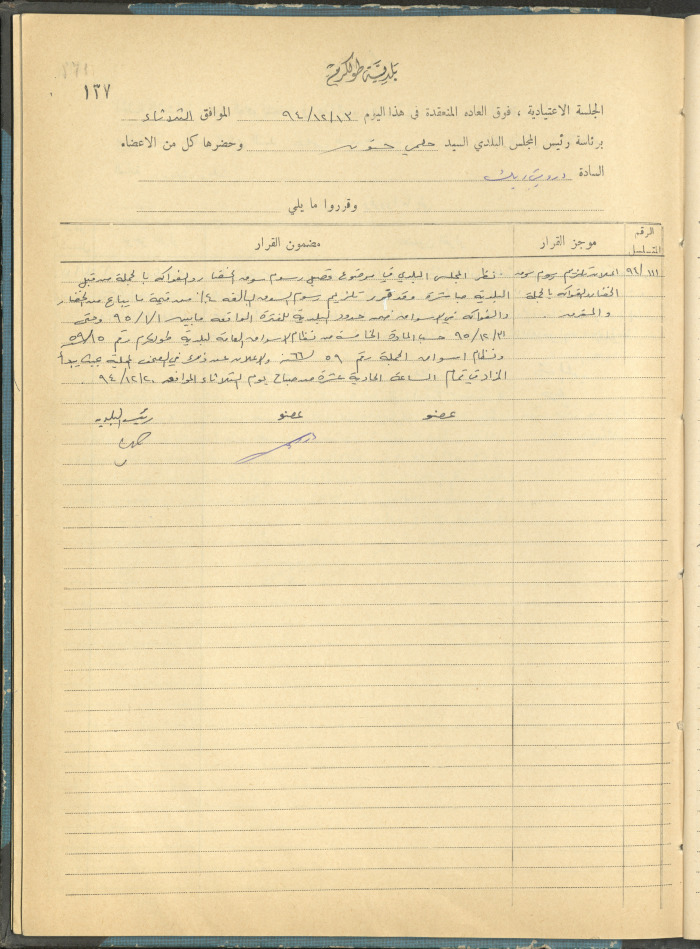 ١٣٧
بلدية طولكرم
الجلسة الاعتيادية ، فوق العاده المنعقدة في هذا اليوم ٩٤/١٢/١٣ الموافق الثلاثاء
برئاسة رئيس المجلس البلدي السيد حلمي حنون وحضرها كل من الاعضاء
السادة
وقرروا ما يلي
الرقم المتسلسل
موجز القرار
مضمون القرار
٩٤/١١١
اعلان تلزيم رسوم سوق
الخضار والفواكه بالجملة
نظر المجلس البلدي في موضوع تحصيل رسوم سوق الخضار والفواكه بالجملة من قبل
البلدية مباشرة وقد قرر تلزيم رسوم السوق البالغه ٤٪ من قيمة ما يباع من الخضار
والفواكه في الاسواق ضمن حدود البلدية للفترة الواقعه ما بين ٩٥/١/١ وحتى
٩٥/١٢/٣١ حسب المادة الخامسة من نظام الاسواق العامة لبلدية طولكرم رقم
ونظام اسواق الجملة رقم ٥٩ والاعلان عن ذلك في الصحف المحلية بحيث يبدأ
المزاد في تمام الساعة الحادية عشرة من صباح يوم الثلاثاء الموافق ٩٤/١٢/٢٠
عضو
عضو
رئيس البلدية